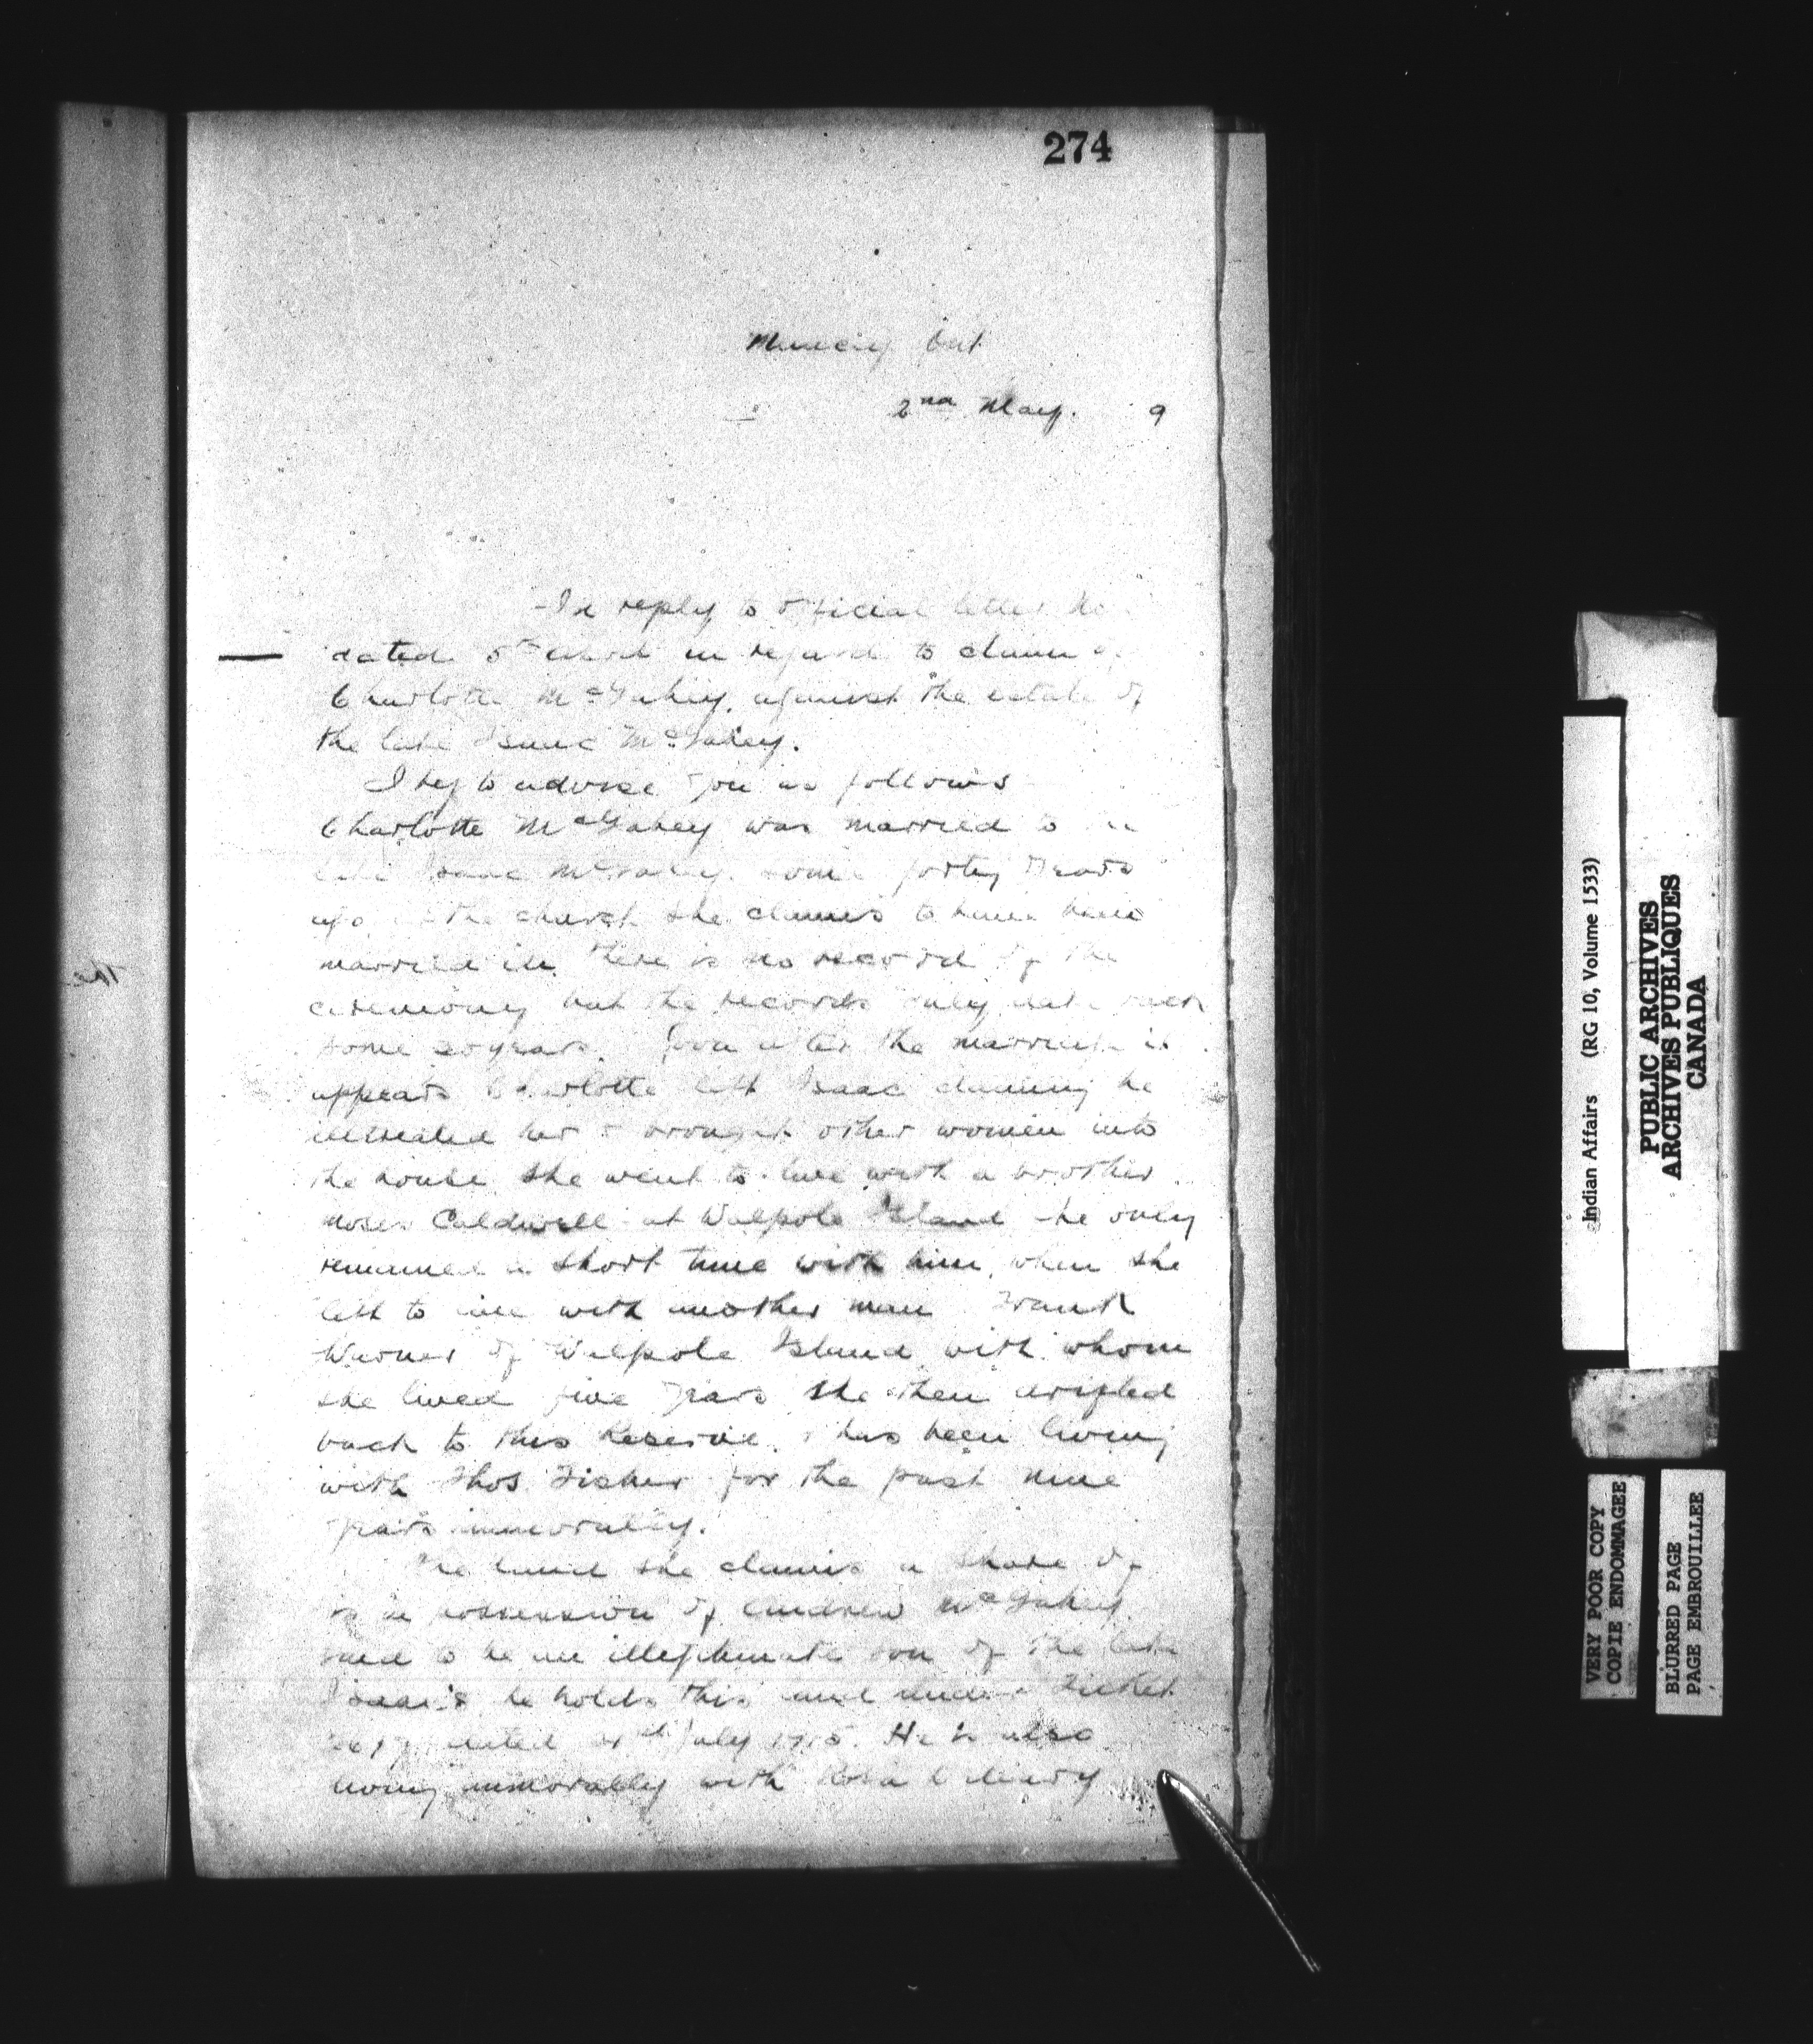 274
Muncey Ont
2nd May. 9
In reply to official letter No
dated 5th in regard to claim of
Charlotte McGahey. against the estate of
the late Isaac McGahey.
I beg to advise you as follows
Charlotte McGahey was married to the
late Isaac McGahey. some forty years
ago the church she claims to have been
married in there is no record of the
ceremony but the records only date back
some 20 years. Soon after the marriage it
appears Charlotte left Isaac claiming he
illtreated her & brought other women into
the house she went to live with a brother
Moses Caldwell at Walpole Island she only
remained a short time with him, when she
left to live with another man Frank
Warner of Walpole Island with whom
she lived five years she then drifted
back to this Reserve. & has been living
with Thos Fisher for the past nine
years immorally.
The land she claims a share of
is in possession of Andrew McGahey
said to be an illegitimate son of the late
Isaac's he holds this land under Ticket
dated July He is also
living immorally with
The
Indian Affairs (RG 10, Volume 1533)
PUBLIC ARCHIVES
ARCHIVES PUBLIQUES
CANADA
VERY POOR COPY
COPIE ENDOMMAGEE
BLURRED PAGE
PAGE EMBROUILLEE